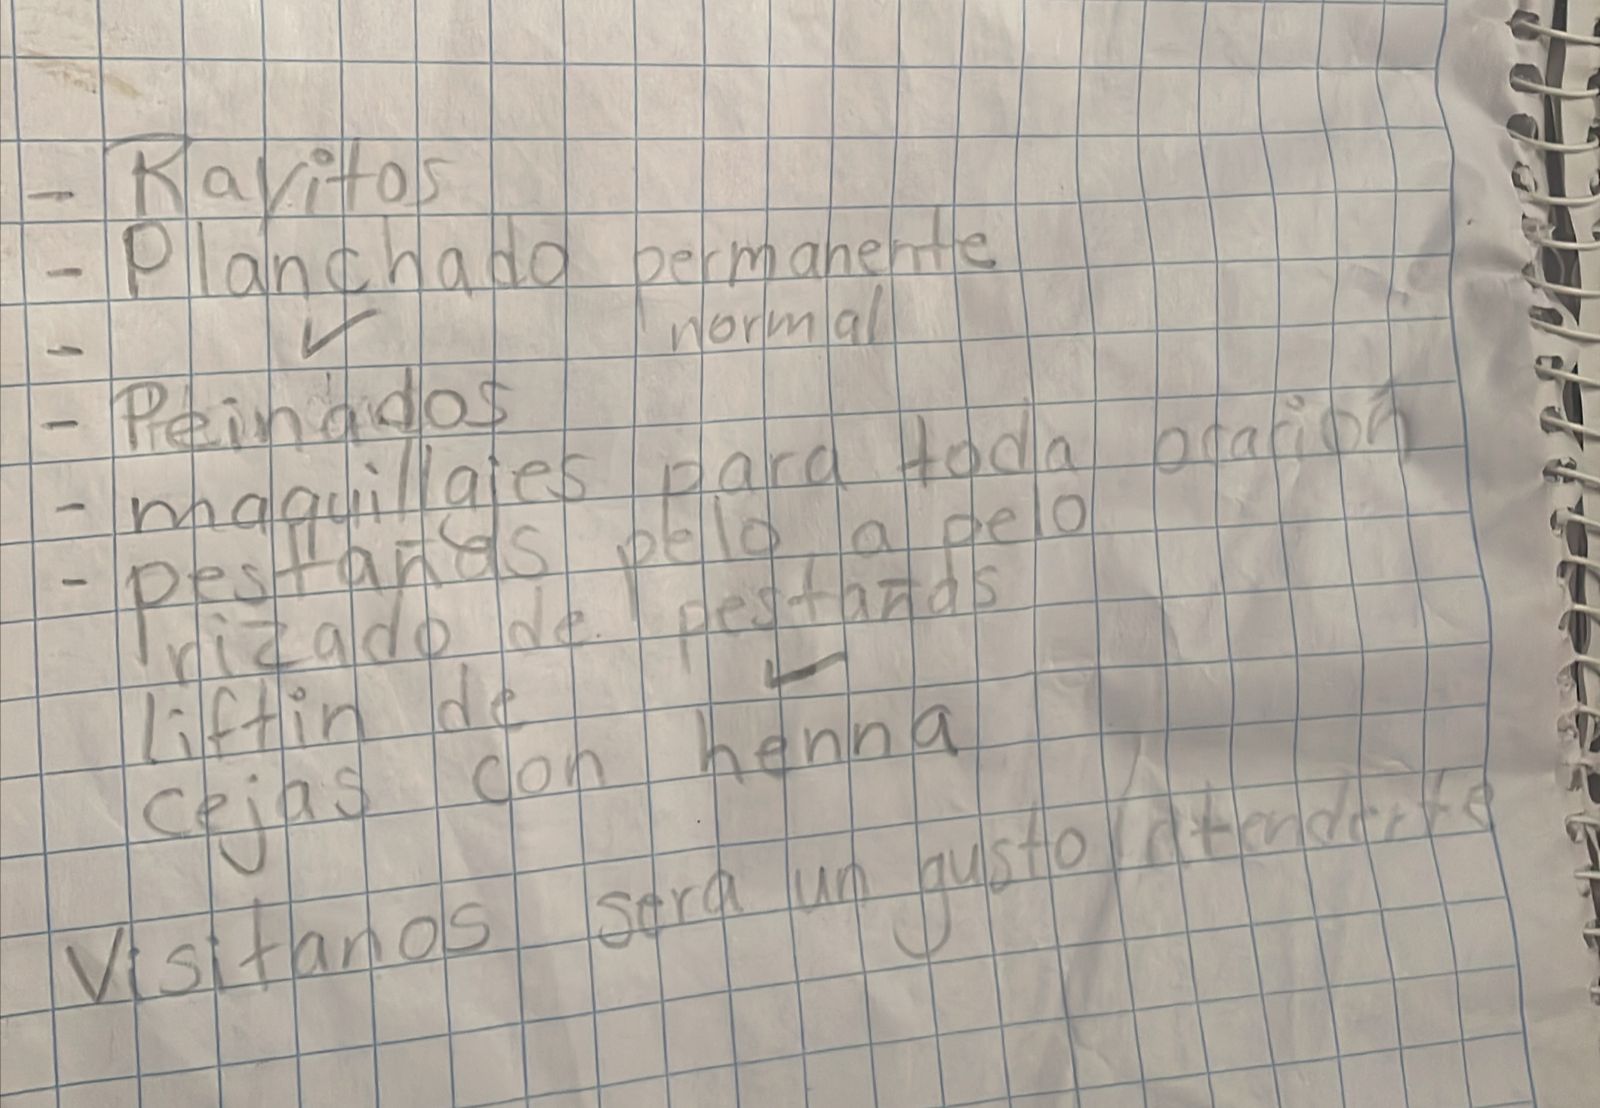 - Rayitos
- Planchado permanente
- ✓ normal
- Peinados
- maquillajes para toda ocación
- pestañas pelo a pelo
rizado de pestañas
✓
liftin de
cejas con henna
Visitanos sera un gusto atenderte